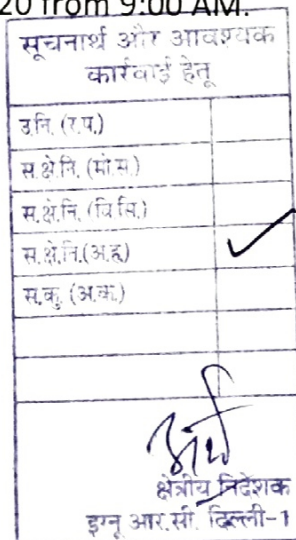 20 from 9:00 AM.
सूचनार्थ और आवश्यक
कार्रवाई हेतू
उ.नि. (र.प.)
स.क्षे.नि. (मो.स.)
स.क्षे.नि. (वि.सि.)
स.क्षे.नि.(अ.ह.)
स.कु. (अ.क.)
क्षेत्रीय निदेशक
इग्नू आर.सी. दिल्ली-1